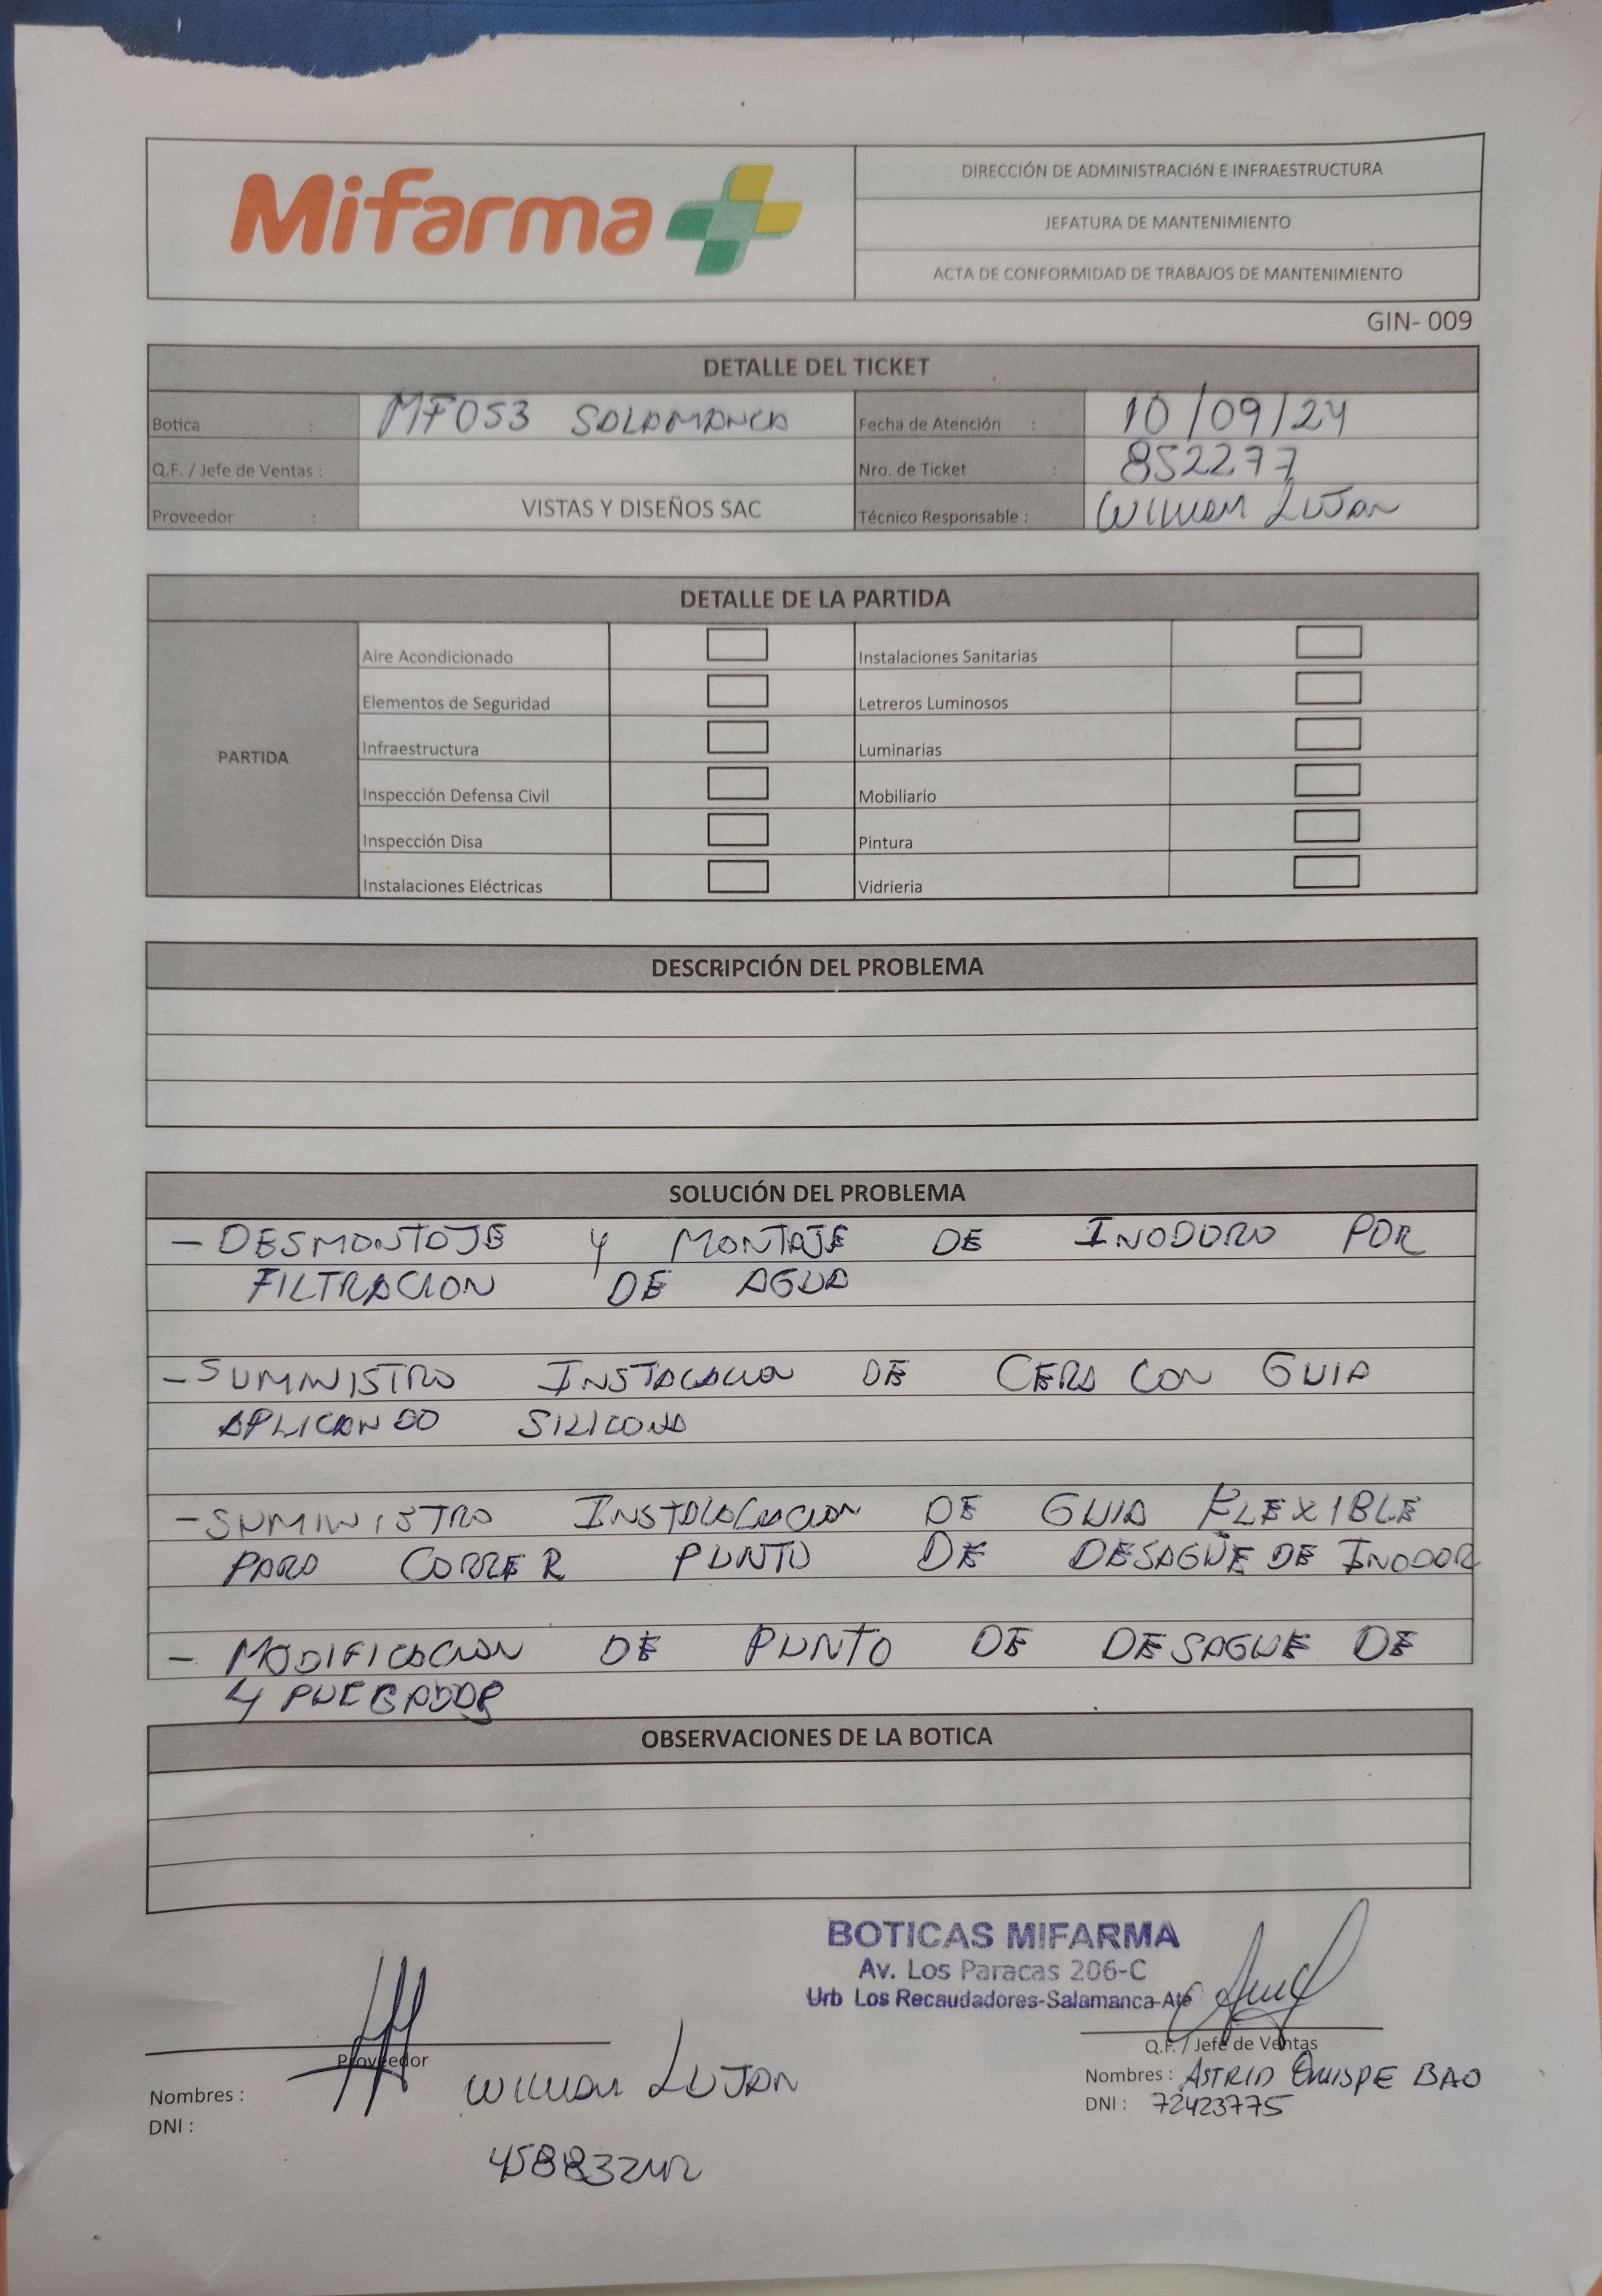 Mifarma
DIRECCIÓN DE ADMINISTRACIóN E INFRAESTRUCTURA
JEFATURA DE MANTENIMIENTO
ACTA DE CONFORMIDAD DE TRABAJOS DE MANTENIMIENTO
GIN- 009
DETALLE DEL TICKET
Botica : MF053 SALAMANCA Fecha de Atención : 10/09/24
Q.F. / Jefe de Ventas : Nro. de Ticket : 852277
Proveedor : VISTAS Y DISEÑOS SAC Técnico Responsable : WILLIAM LUJAN
DETALLE DE LA PARTIDA
PARTIDA
Aire Acondicionado Instalaciones Sanitarias
Elementos de Seguridad Letreros Luminosos
Infraestructura Luminarias
Inspección Defensa Civil Mobiliario
Inspección Disa Pintura
Instalaciones Eléctricas Vidrieria
DESCRIPCIÓN DEL PROBLEMA
SOLUCIÓN DEL PROBLEMA
- DESMONTAJE Y MONTAJE DE INODORO POR
FILTRACION DE AGUA
- SUMINISTRO INSTALACION DE CERA CON GUIA
APLICANDO SILICONA
- SUMINISTRO DE GUIA FLEXIBLE
PARA CORRER PUNTO DE DESAGÜE DE INODOR
- MODIFICACION DE PUNTO DE DESAGUE DE
4 PULGADAS
OBSERVACIONES DE LA BOTICA
BOTICAS MIFARMA
Av. Los Paracas 206-C
Urb Los Recaudadores-Salamanca-Ate
Proveedor
Nombres : WILLIAM LUJAN
DNI :
Q.F. / Jefe de Ventas
Nombres : ASTRID QUISPE BAO
DNI : 72423775